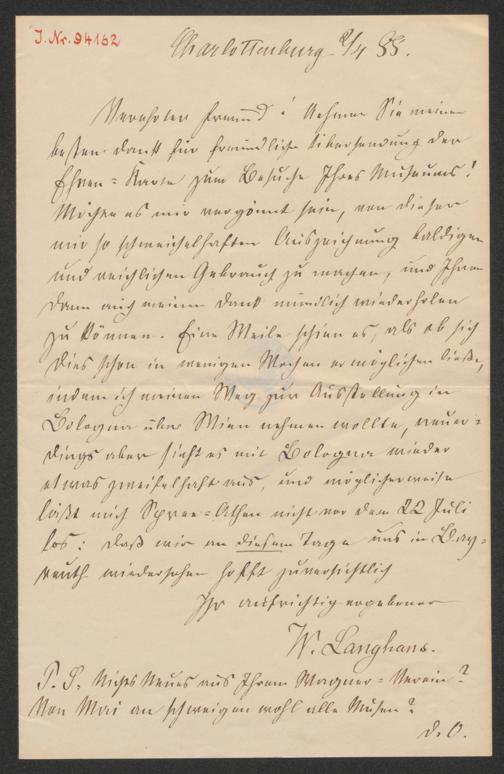 J. Nr. 94162
Charlottenburg 2/4 88.
Verehrter Freund! Nehmen Sie meinen
besten Dank für freundliche Übersendung der
Ehren=Karte zum Besuche Ihres Museums!
Möchte es mir vergönnt sein, von dieser
mir so schmeichelhaften Auszeichnung baldigen
und reichlichen Gebrauch zu machen, und Ihnen
dann auch meinen Dank mündlich wiederholen
zu können. Eine Weile schien es, als ob sich
dies schon in wenigen Wochen ermöglichen ließe,
indem ich meinen Weg zur Ausstellung in
Bologna über Wien nehmen wollte, neuer=
dings aber sieht es mit Bologna wieder
etwas zweifelhaft aus, und möglicherweise
läßt mich Spree=Athen nicht vor dem 22 Juli
los: daß wir an diesem Tage uns in Bay=
reuth wiedersehen hofft zuversichtlich
Ihr aufrichtig ergebener
W. Langhans.
P. S. Nichts Neues aus Ihrem Wagner=Verein?
Von Mai an schweigen wohl alle Musen?
d. O.